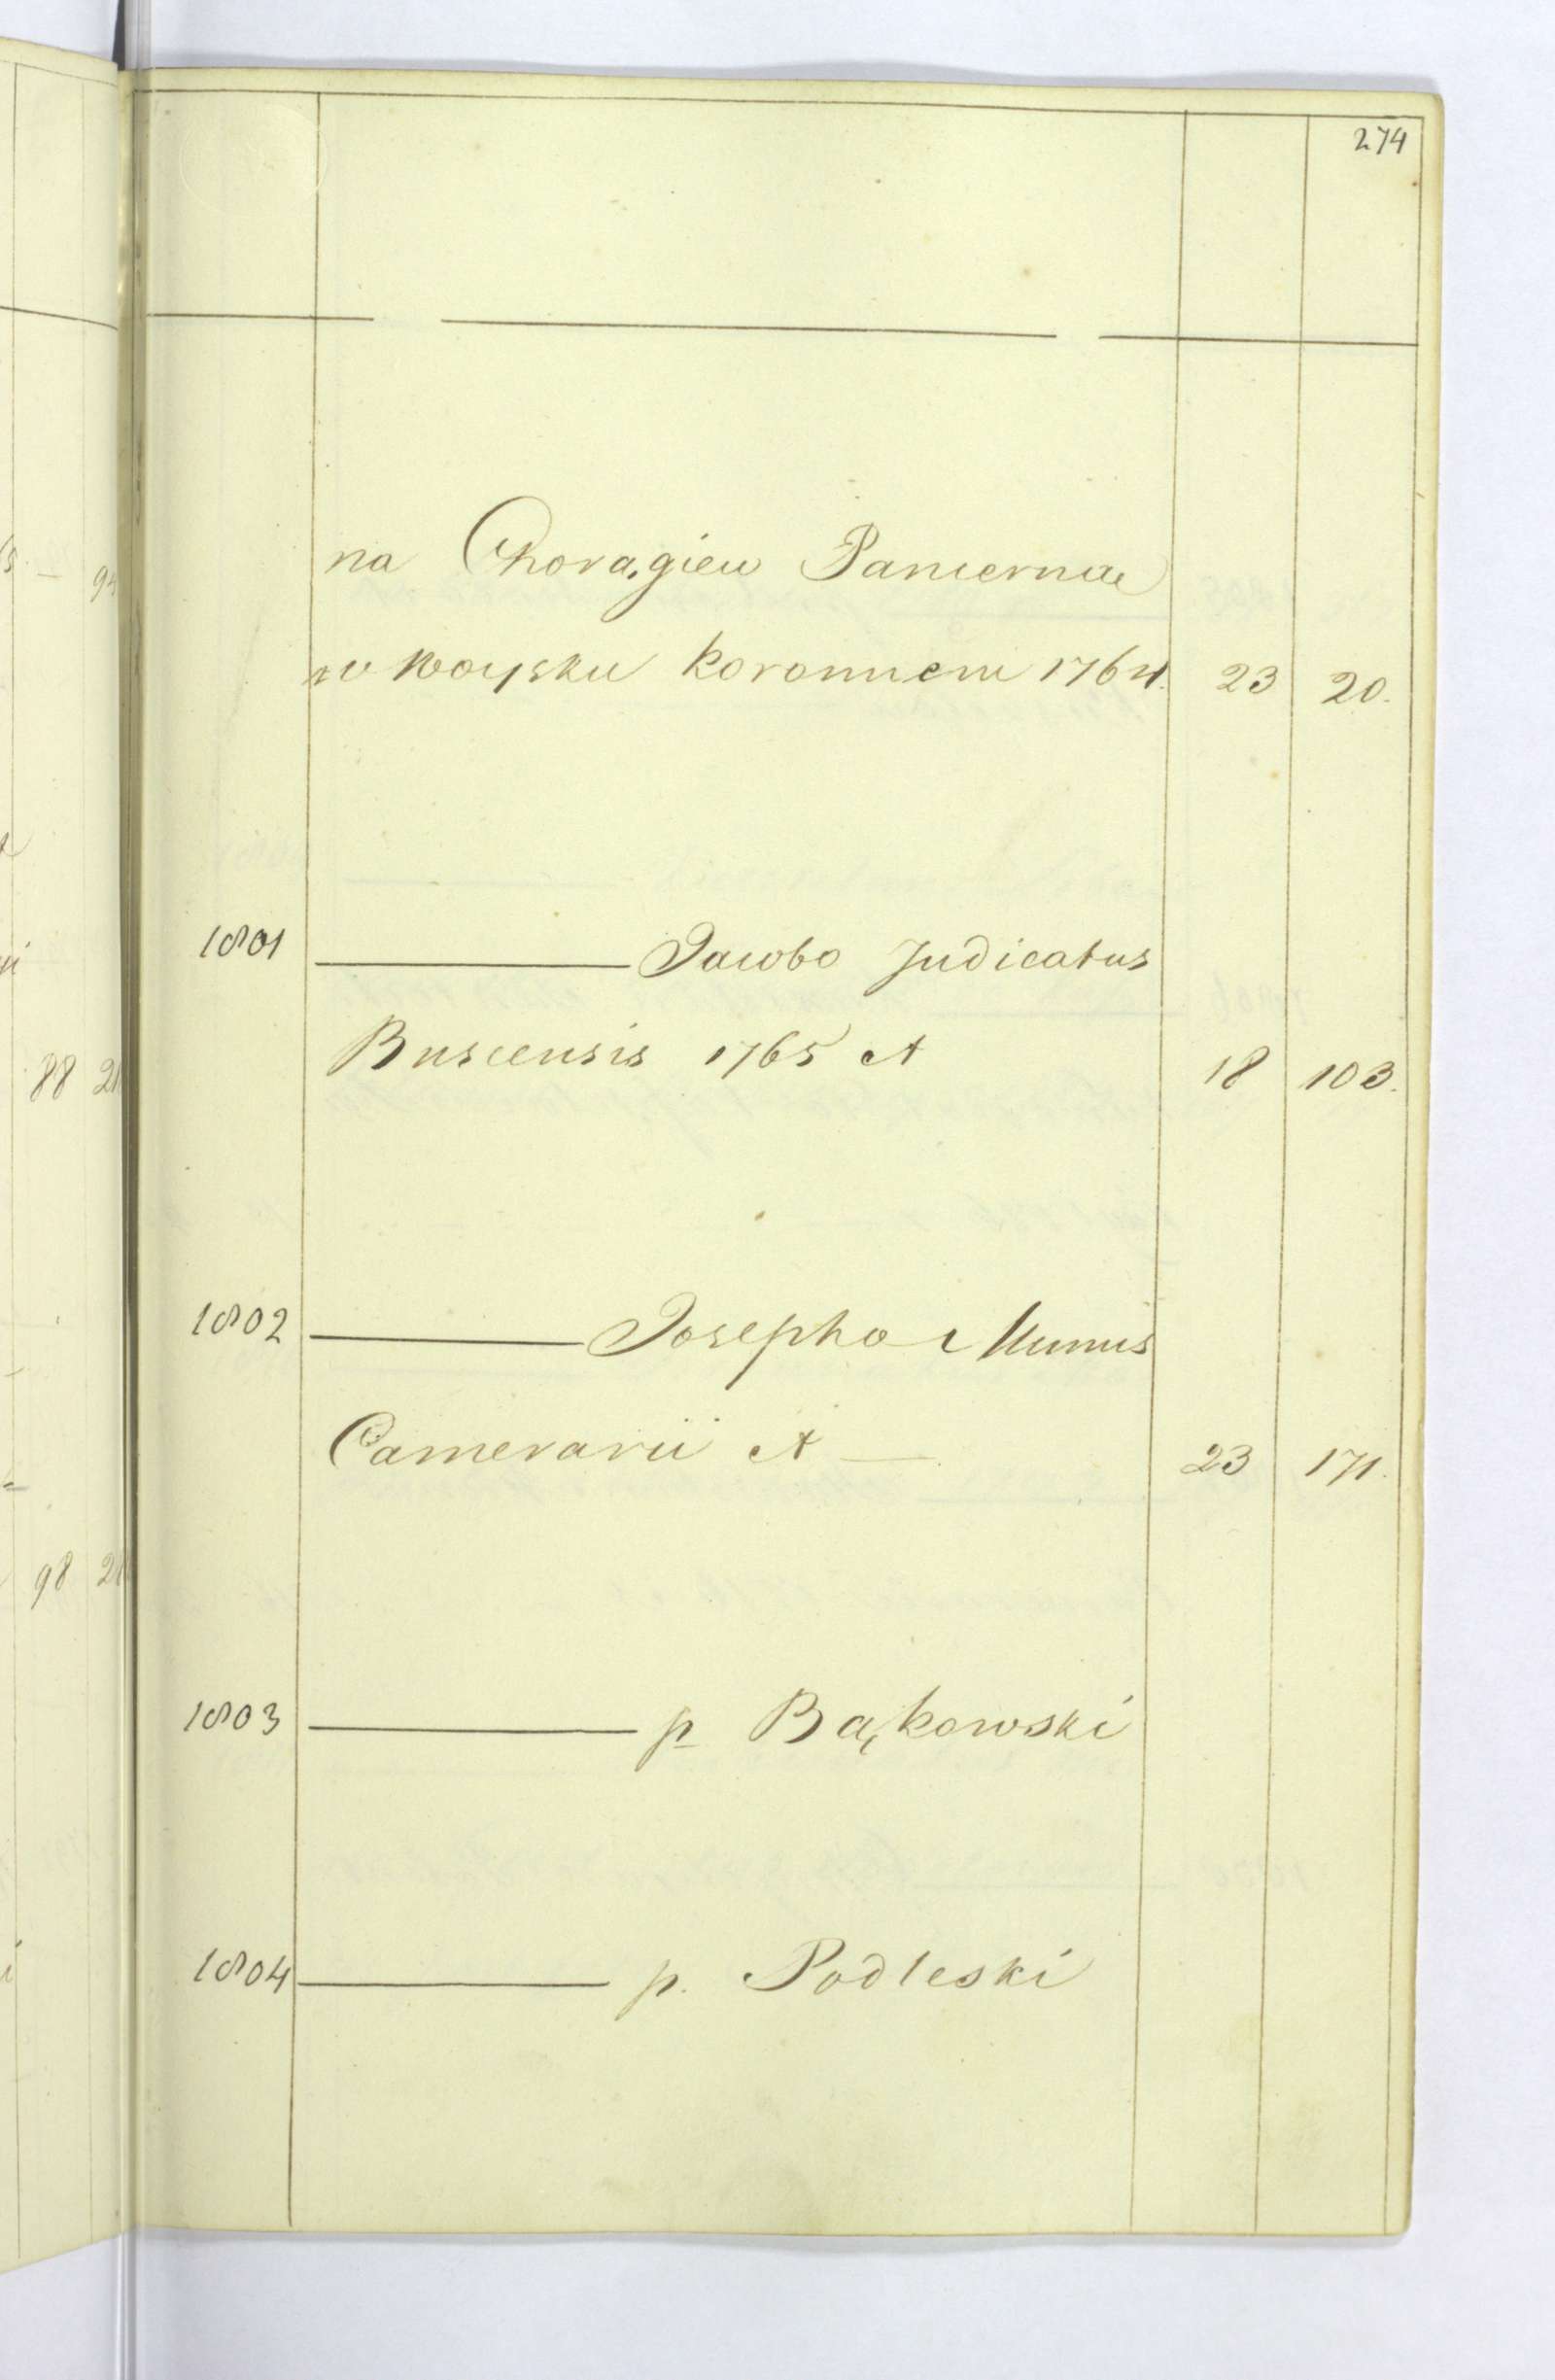 274
na Chorągiew Pancerna
w Woysku Koronnem 1764. 23 20.
1801 ——— Jacobo Judicatus
Buscensis 1765 et 18 103.
1802 ——— Josepho Munus
Camerarii et — 23 171.
1803 ——— p Bąkowski
1804 ——— p. Podleski
88 21
98 2